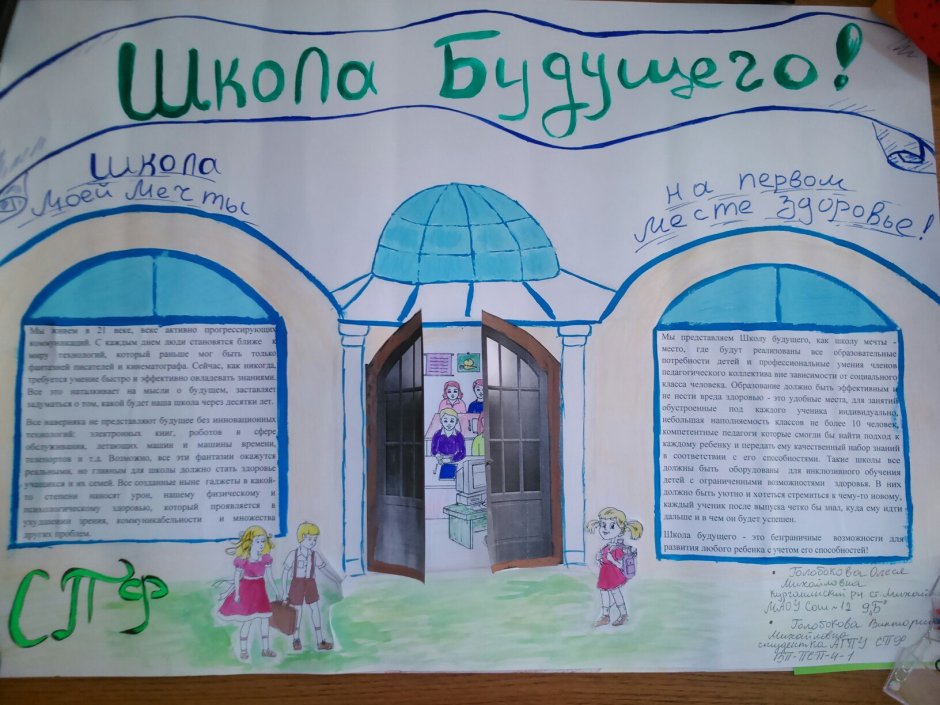 Школа Будущего!
Школа
Моей Мечты
На первом
месте Здоровье!
Мы живем в 21 веке, веке активно прогрессирующих
коммуникаций. С каждым днем люди становятся ближе к
миру технологий, который раньше мог быть только
фантазией писателей и кинематографа. Сейчас, как никогда,
требуется умение быстро и эффективно овладевать знаниями.
Все это наталкивает на мысли о будущем, заставляет
задуматься о том, какой будет наша школа через десятки лет.
Все наверняка не представляют будущее без инновационных
технологий: электронных книг, роботов в сфере
обслуживания, летающих машин и машины времени,
телепортов и т.д. Возможно, все эти фантазии окажутся
реальными, но главным для школы должно стать здоровье
учащихся и их семей. Все созданные ныне гаджеты в какой-
то степени наносят урон, нашему физическому и
психологическому здоровью, который проявляется в
ухудшении зрения, коммуникабельности и множества
других проблем.
Мы представляем Школу будущего, как школу мечты -
место, где будут реализованы все образовательные
потребности детей и профессиональные умения членов
педагогического коллектива вне зависимости от социального
класса человека. Образование должно быть эффективным и
не нести вреда здоровью - это удобные места, для занятий
обустроенные под каждого ученика индивидуально,
небольшая наполняемость классов не более 10 человек,
компетентные педагоги которые смогли бы найти подход к
каждому ребенку и передать ему качественный набор знаний
в соответствии с его способностями. Такие школы все
должны быть оборудованы для инклюзивного обучения
детей с ограниченными возможностями здоровья. В них
должно быть уютно и хотеться стремиться к чему-то новому,
каждый ученик после выпуска четко бы знал, куда ему идти
дальше и в чем он будет успешен.
Школа будущего - это безграничные возможности для
развития любого ребенка с учетом его способностей!
СПФ
• Голобокова Олеся
Михайловна
Курганинский р-н ст. Михай
МАОУ Сош №12 9„Б"
• Голобокова Виктория
Михайловна
студентка АГПУ СПФ
ВП-ПСП-4-1